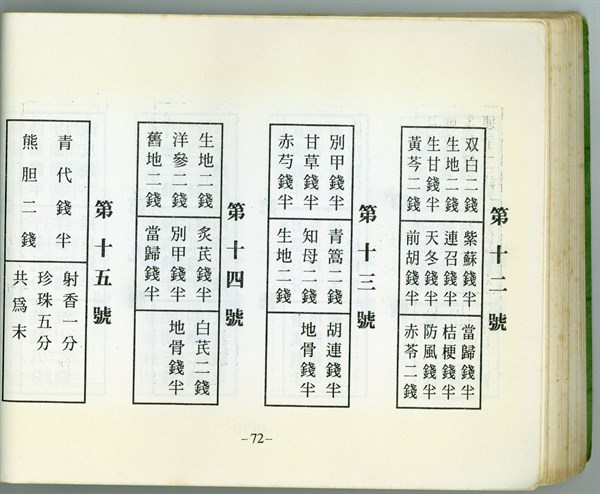 第十二號
双白二錢
生地二錢
生甘錢半
黃芩二錢
紫蘇錢半
連召錢半
天冬錢半
前胡錢半
當歸錢半
桔梗錢半
防風錢半
赤苓二錢
第十三號
別甲錢半
甘草錢半
赤芍錢半
青蒿二錢
知母二錢
生地二錢
胡連錢半
地骨錢半
第十四號
生地二錢
洋參二錢
舊地二錢
炙芪錢半
別甲錢半
當歸錢半
白芪二錢
地骨錢半
第十五號
青代錢半
熊胆二錢
射香一分
珍珠五分
共爲末
–72–